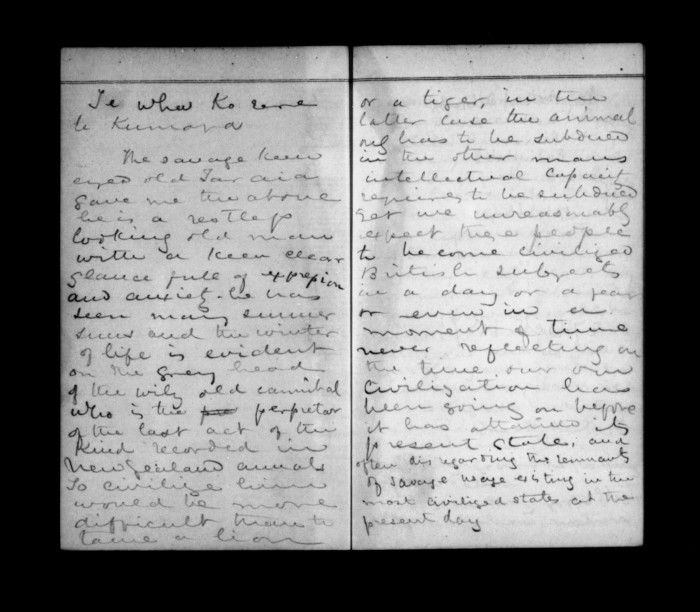 Te whea Ko rere
te Kumara
The savage keen
eyed old Tar aia
gave me the above
he is a restless
looking old man
with a keen clear
glance full of expression
and anxiety. he has
seen many summer
suns and the winter
of life is evident
on the grey head
of the wily old cannibal
who is the perpetor
of the last act of the
kind recorded in
New Zealand annals
To civilize him
would be more
difficult than to
tame a lion
or a tiger, in the
latter case the animal
only has to be subdued
in the other mans
intellectual capacity
requires to be subdued
yet we unreasonably
expect these people
to become civilized
British subjects
in a day or a year
or even in a
moment of time
never reflecting on
the time our own
civilization has
been going on before
it has attained its
present state, and
often disregarding the remnants
of savage usage existing in the
most civilized states at the
present day